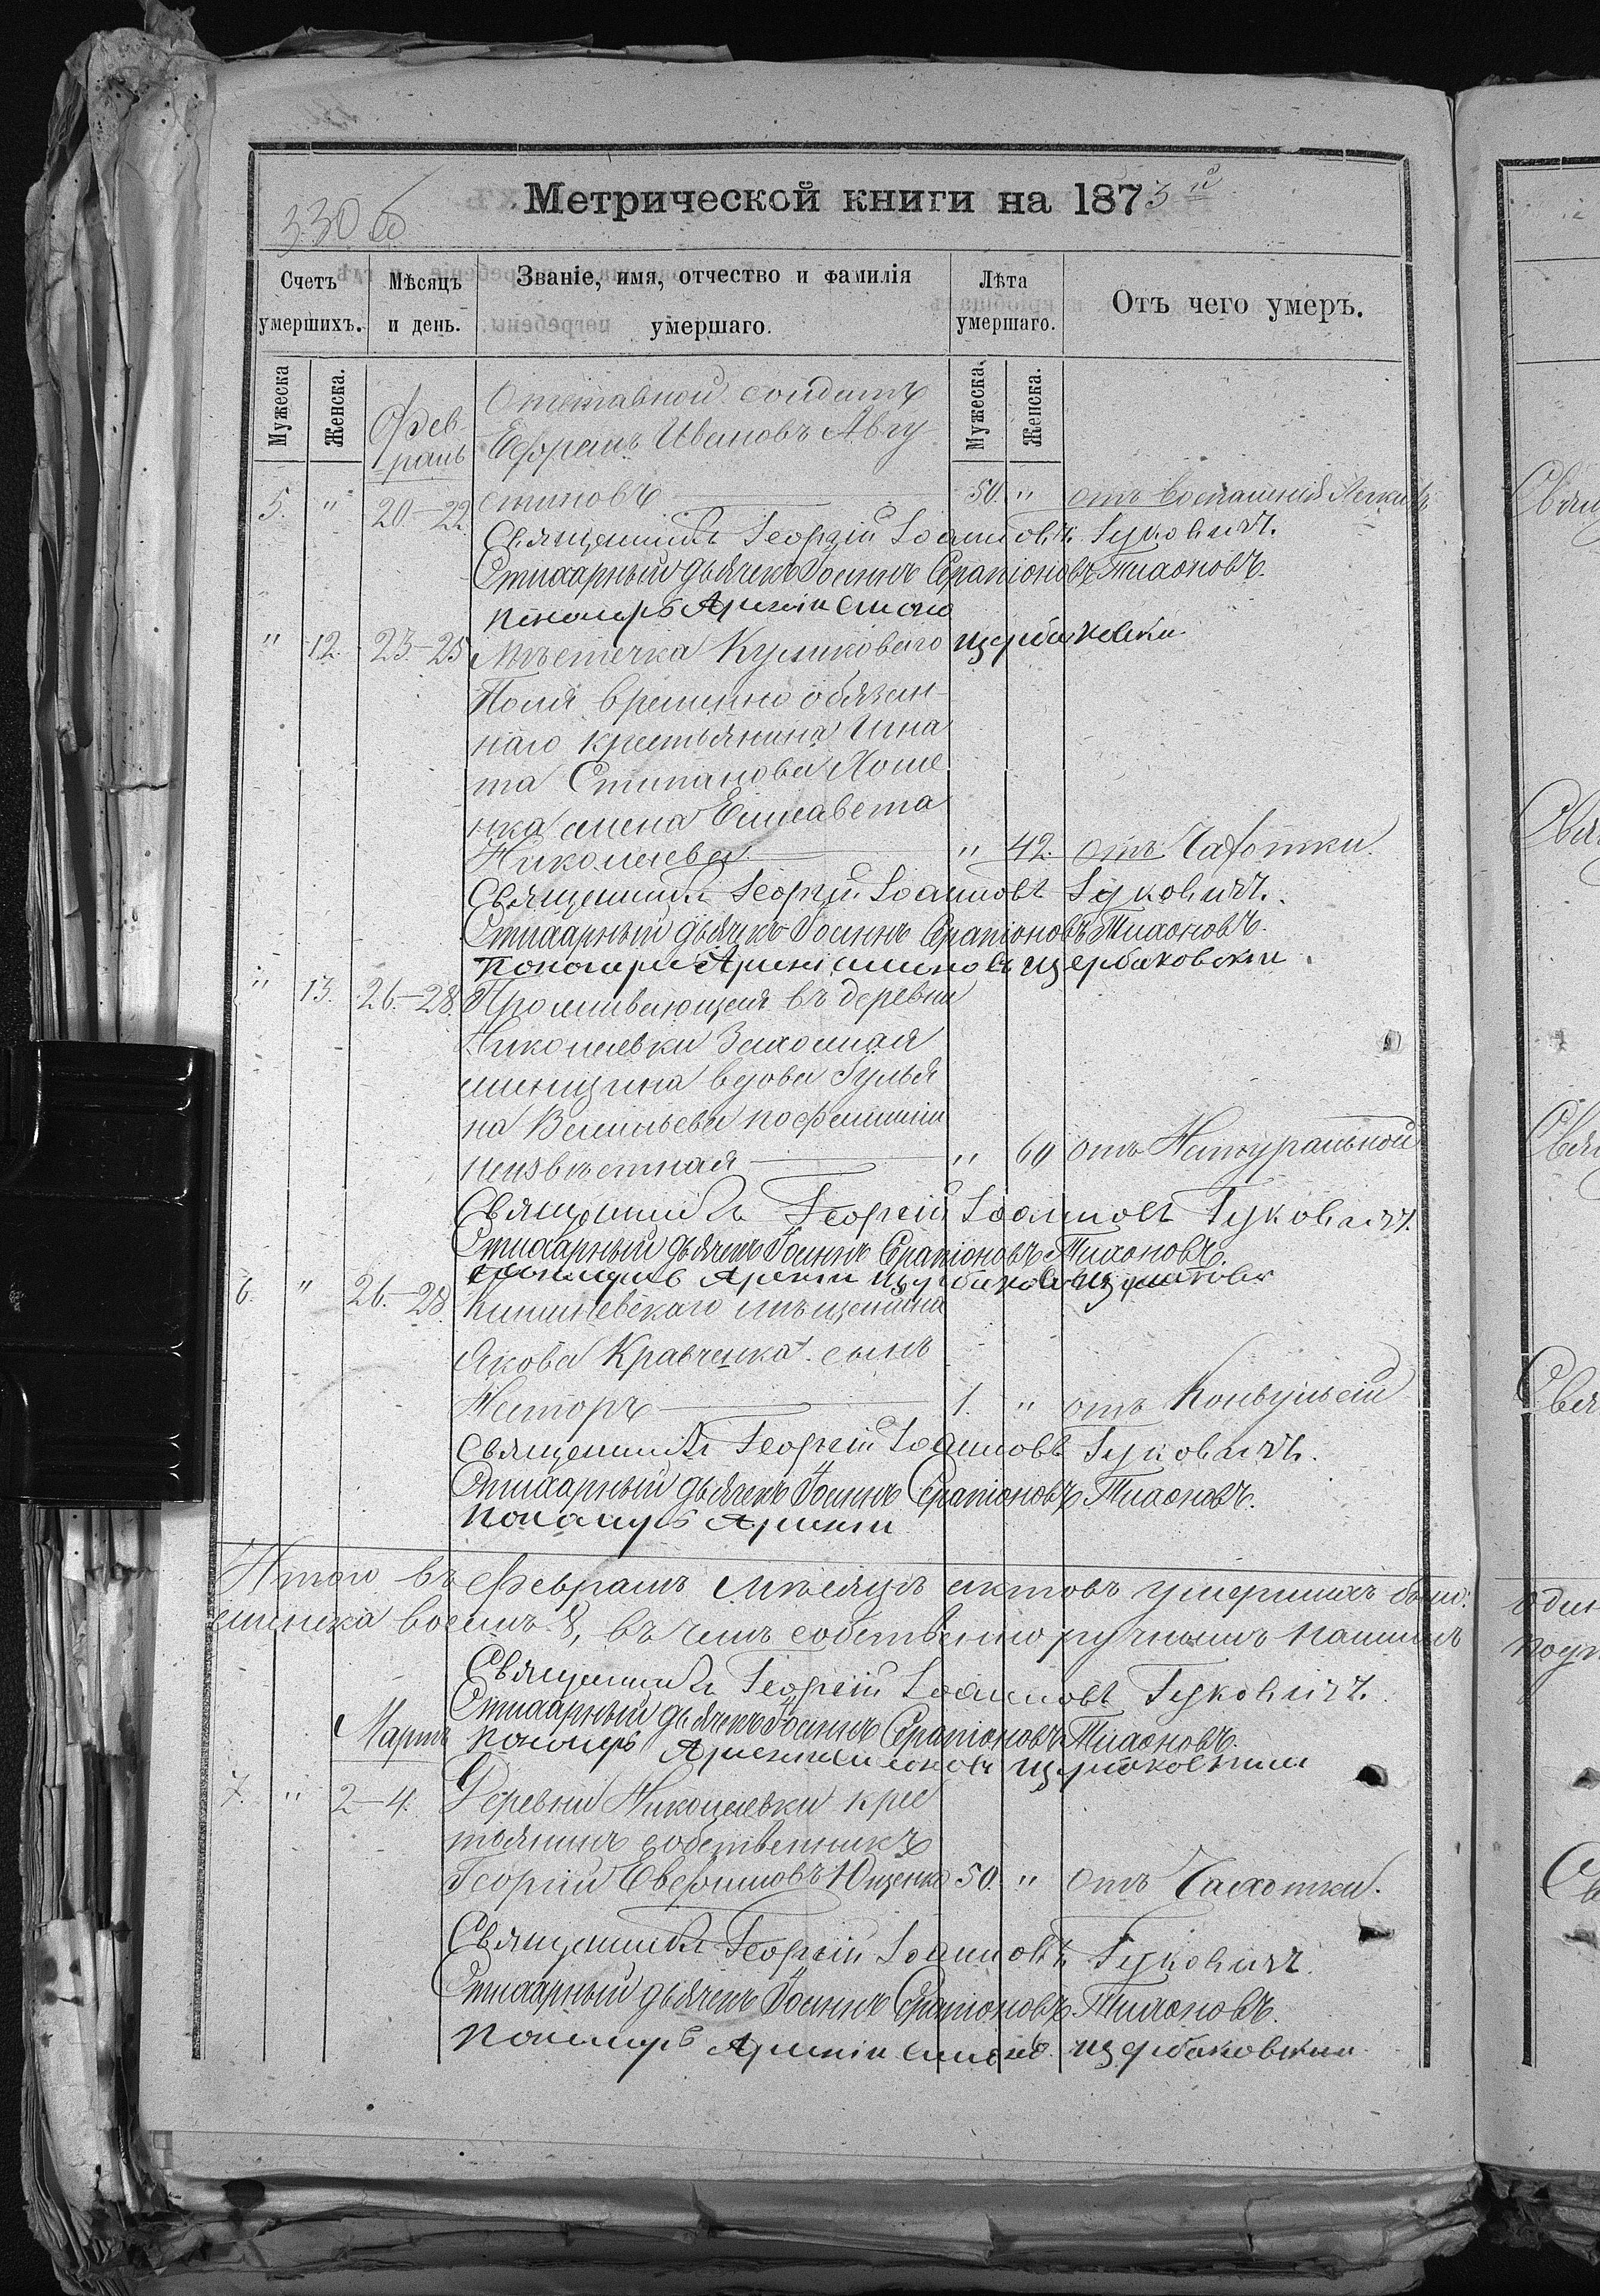 Метрической книги на 1873 й
330 об
Счетъ умершихъ.
Мѣсяцъ и день.
Званіе, имя, отчество и фамилія умершаго.
Лѣта умершаго.
Отъ чего умеръ.
Мужеска
Женска.
Мужеска.
Женска.
Фев-
раль
Отставной солдатъ
Ефремъ Ивановъ Авгу
5. " 20–22 стиновъ 50. " отъ воспаленія легкихъ
Священникъ Георгій Іоанновъ Гуковичъ.
Стихарный дьячекъ Іоаннъ Серапіоновъ Тихоновъ.
Пономарь Арсеній
" 12. 23–25 Мѣстечка Куликоваго Щербаковски
Поля временно обязан-
наго крестьянина Игна
та Степанова
жена Елисавета
Николаева " 42. отъ Чахотки.
Священникъ Георгій Іоанновъ Гуковичъ.
Стихарный дьячекъ Іоаннъ Серапіоновъ Тихоновъ.
Пономарь Арсеній Щербаковски.
" 13. 26–28. Проживающая въ деревни
Николаевки
женщина вдова Гулья
на Васильева по фамиліи
неизвѣстная " 60 отъ Натуральной
Священникъ Георгій Іоанновъ Гуковичъ.
Стихарный дьячекъ Іоаннъ Серапіоновъ Тихоновъ.
Пономарь Арсеній
6. " 26–28. Кишиневскаго мѣщанина
Якова Кравченка сынъ
Несторъ 1. " отъ Конвульсій
Священникъ Георгій Іоанновъ Гуковичъ.
Стихарный дьячекъ Іоаннъ Серапіоновъ Тихоновъ.
Пономарь Арсеній
Итого въ Февралѣ мѣсяцѣ актовъ умершихъ
восемь 8, въ чемъ собственно ручнымъ
Священникъ Георгій Іоанновъ Гуковичъ.
Стихарный дьячекъ Іоаннъ Серапіоновъ Тихоновъ.
Мартъ Пономарь Арсеній Щербаковски
7. " 2–4. Деревни Николаевки крес
тьянинъ собственникъ
Георгій Ющенко 50. " отъ Чахотки.
Священникъ Георгій Іоанновъ Гуковичъ.
Стихарный дьячекъ Іоаннъ Серапіоновъ Тихоновъ.
Пономарь Арсеній Щербаковски